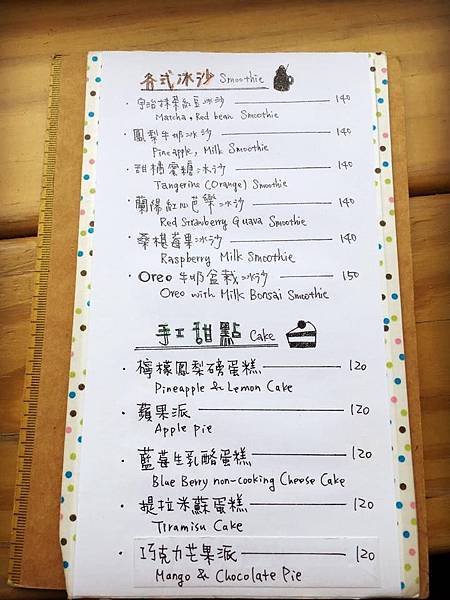 各式冰沙 Smoothie
・宇治抹茶紅豆冰沙 140
Matcha, Red bean Smoothie
・鳳梨牛奶冰沙 140
Pineapple, Milk Smoothie
・甜橘蜜糖冰沙 140
Tangerine (Orange) Smoothie
・蘭陽紅心芭樂冰沙 140
Red Strawberry Guava Smoothie
・桑椹莓果冰沙 140
Raspberry Milk Smoothie
・Oreo 牛奶盆栽冰沙 150
Oreo with Milk Bonsai Smoothie
手工甜點 Cake
・檸檬鳳梨磅蛋糕 120
Pineapple & Lemon Cake
・蘋果派 120
Apple pie
・藍莓生乳酪蛋糕 120
Blue Berry non-cooking Cheese Cake
・提拉米蘇蛋糕 120
Tiramisu Cake
・巧克力芒果派 120
Mango & Chocolate Pie